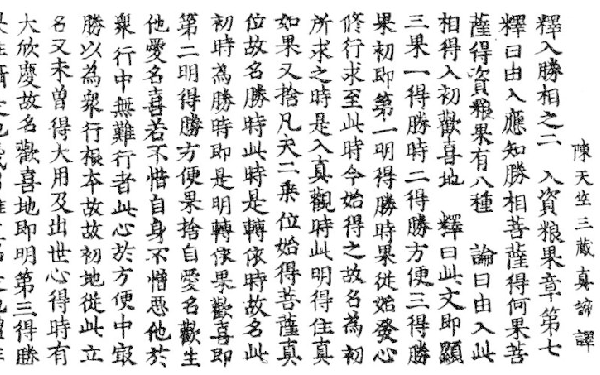 陳天竺三藏真諦譯
釋入勝相之二 入資粮果章第七
釋曰由入應知勝相菩薩得何果菩
薩得資粮果有八種 論曰由入此
相得入初歡喜地 釋曰此文即顯
三果一得勝時二得勝方便三得勝
果初即第一明得勝時果從始發心
修行求至此時今始得之故名為初
所求之時是入真觀時此明得住真
如果又捨凡夫二乗位始得菩薩真
位故名勝時此時是轉依時故名此
初時為勝時即是明轉依果歡喜即
第二明得勝方便果捨自愛名歡生
他愛名喜若不惜自身不憎惡他於
衆行中無難行者此心於方便中㝡
勝以為衆行根本故故初地從此立
名又未曾得大用及出世心得時有
大欣慶故名歡喜地即明第三得勝